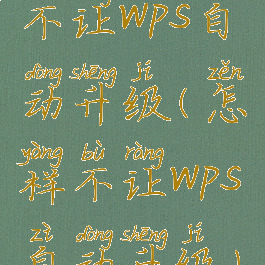 不让WPS自
dòng shēng jí zěn
动升级(怎
yàng bù ràng
样不让WPS
zì dòng shēng jí
自动升级)